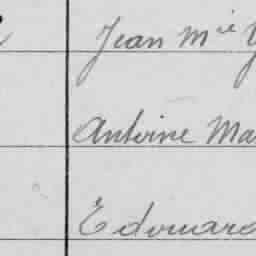 Jean Mie
Antoine Ma
Edouard